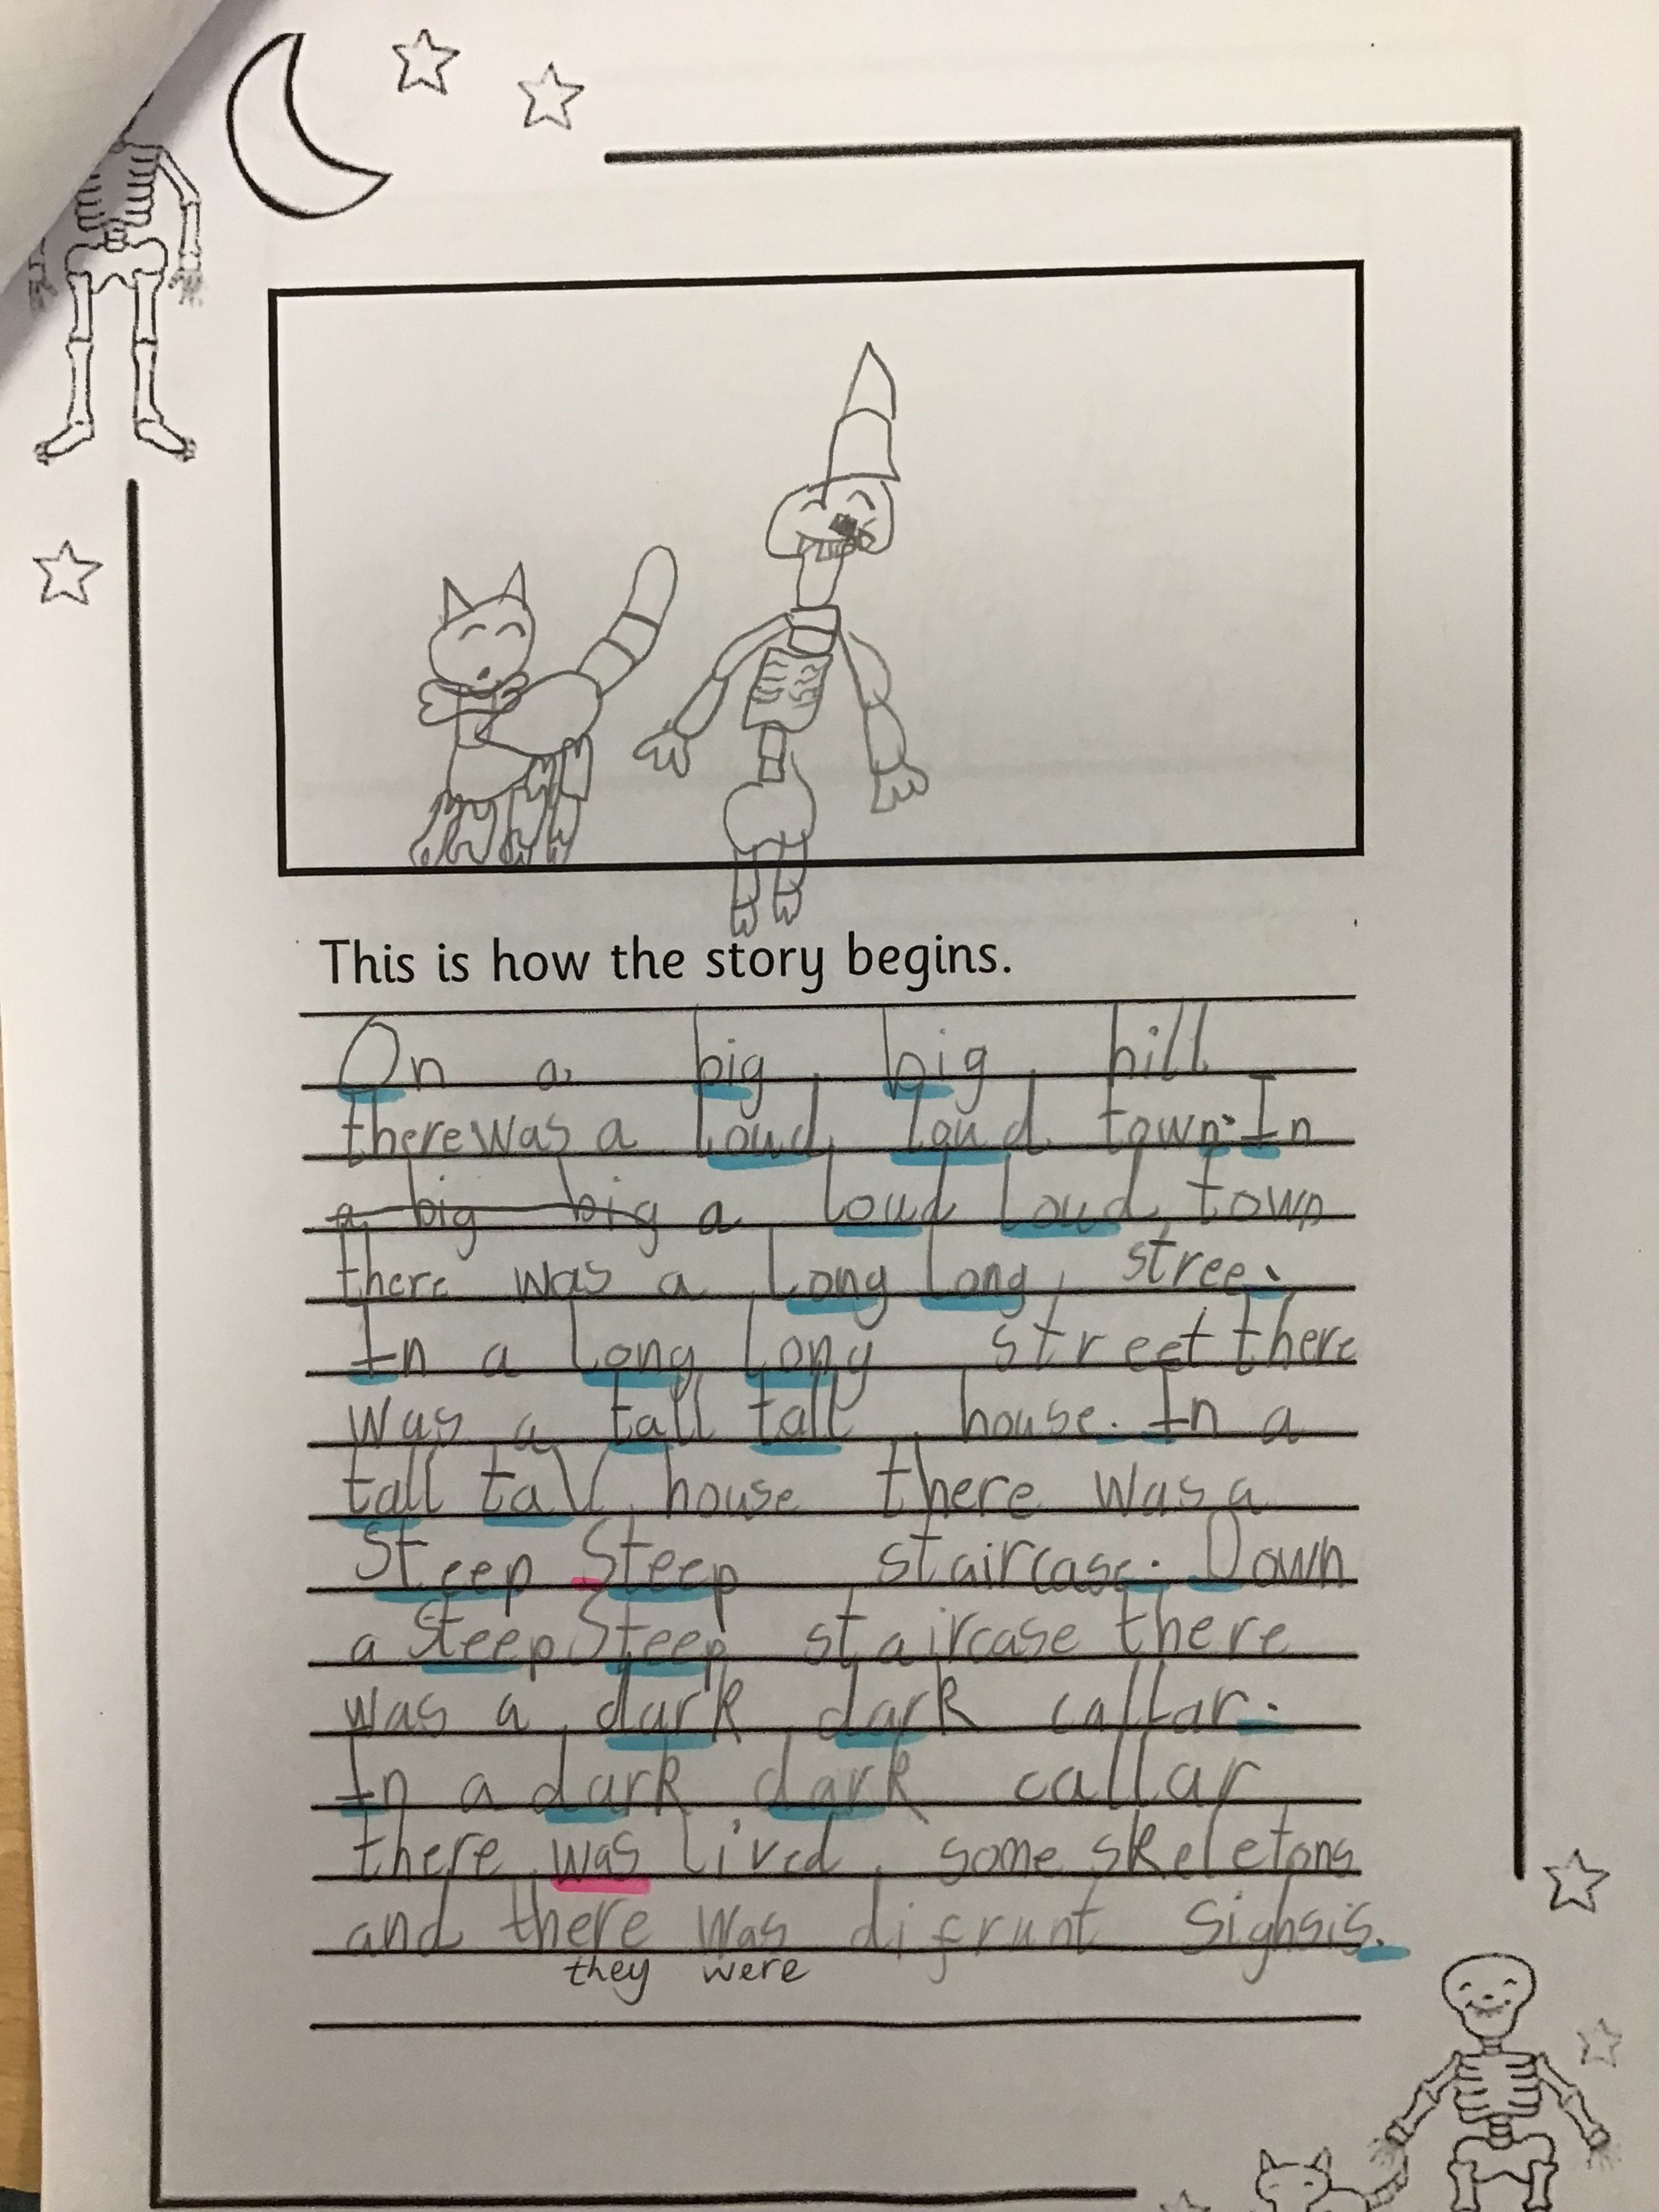 This is how the story begins.
On a big, big, hill
there was a loud, loud, town. In
a big big a loud loud, town
there was a long long, stree.
In a long long street there
was a tall tall, house. In a
tall tall, house there was a
Steep Steep staircase. Down
a Steep Steep, staircase there
was a dark dark callar.
In a dark dark callar
there was lived, some skeletons
and there was difrunt sighsis.
they were